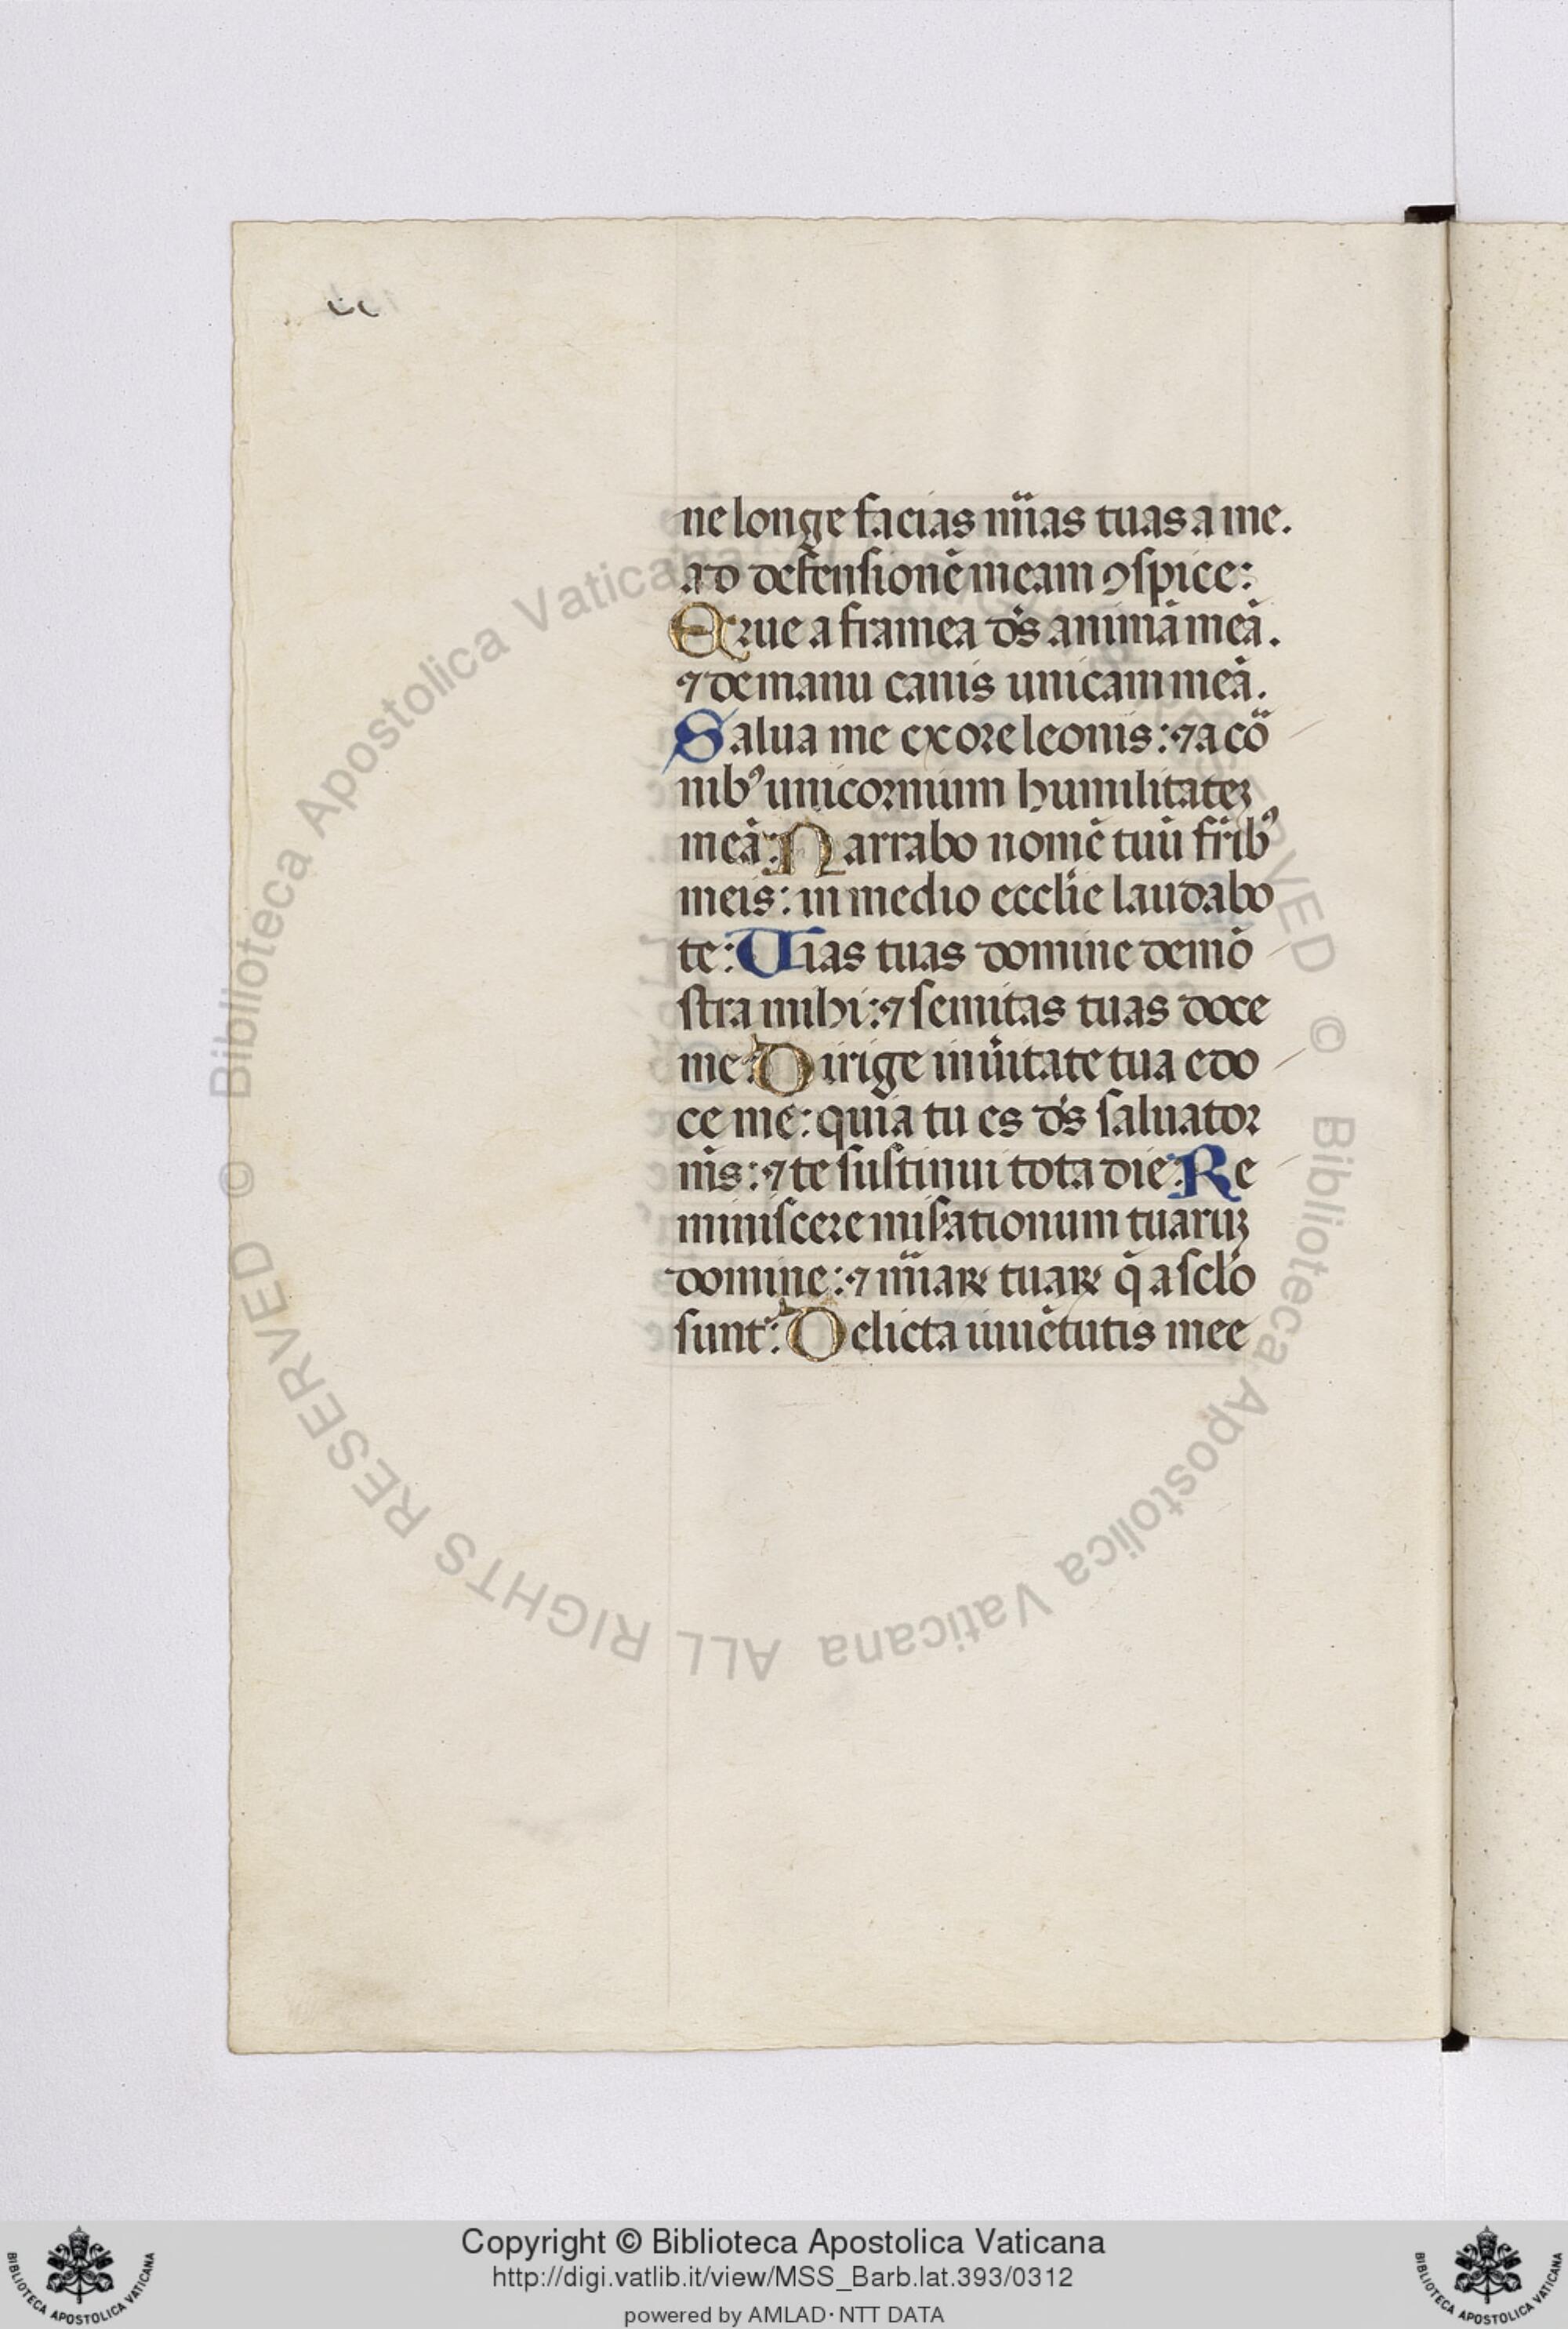 ne longe facias mı̃as tuas a me.
ad defensionẽ meam ꝯspice:
Erue a framea ds̃ animã meã.
⁊ de manu canis unicam meã.
Salua me ex ore leonis: ⁊ a cõ
nibꝰ unicornium humilitateꝫ
meã: Narrabo nomẽ tuũ fr̃ibꝰ
meis: in medio eccl̃ie laudabo
te: Uias tuas domine demõ
stra mihi: ⁊ semitas tuas doce
me: Dirige in ũitate tua edo
ce me: quia tu es ds̃ saluator
ms̃: ⁊ te sustinui tota die: Re
miniscere mis̃ationum tuaruꝫ
domine: ⁊ mı̃aꝝ tuaꝝ q̃ a scl̃o
sunt: Delicta iuuẽtutis mee
© Biblioteca Apostolica Vaticana ALL RIGHTS RESERVED
© Biblioteca Apostolica Vaticana ALL RIGHTS RESERVED
Copyright © Biblioteca Apostolica Vaticana
http://digi.vatlib.it/view/MSS_Barb.lat.393/0312
powered by AMLAD·NTT DATA
BIBLIOTECA APOSTOLICA VATICANA
BIBLIOTECA APOSTOLICA VATICANA